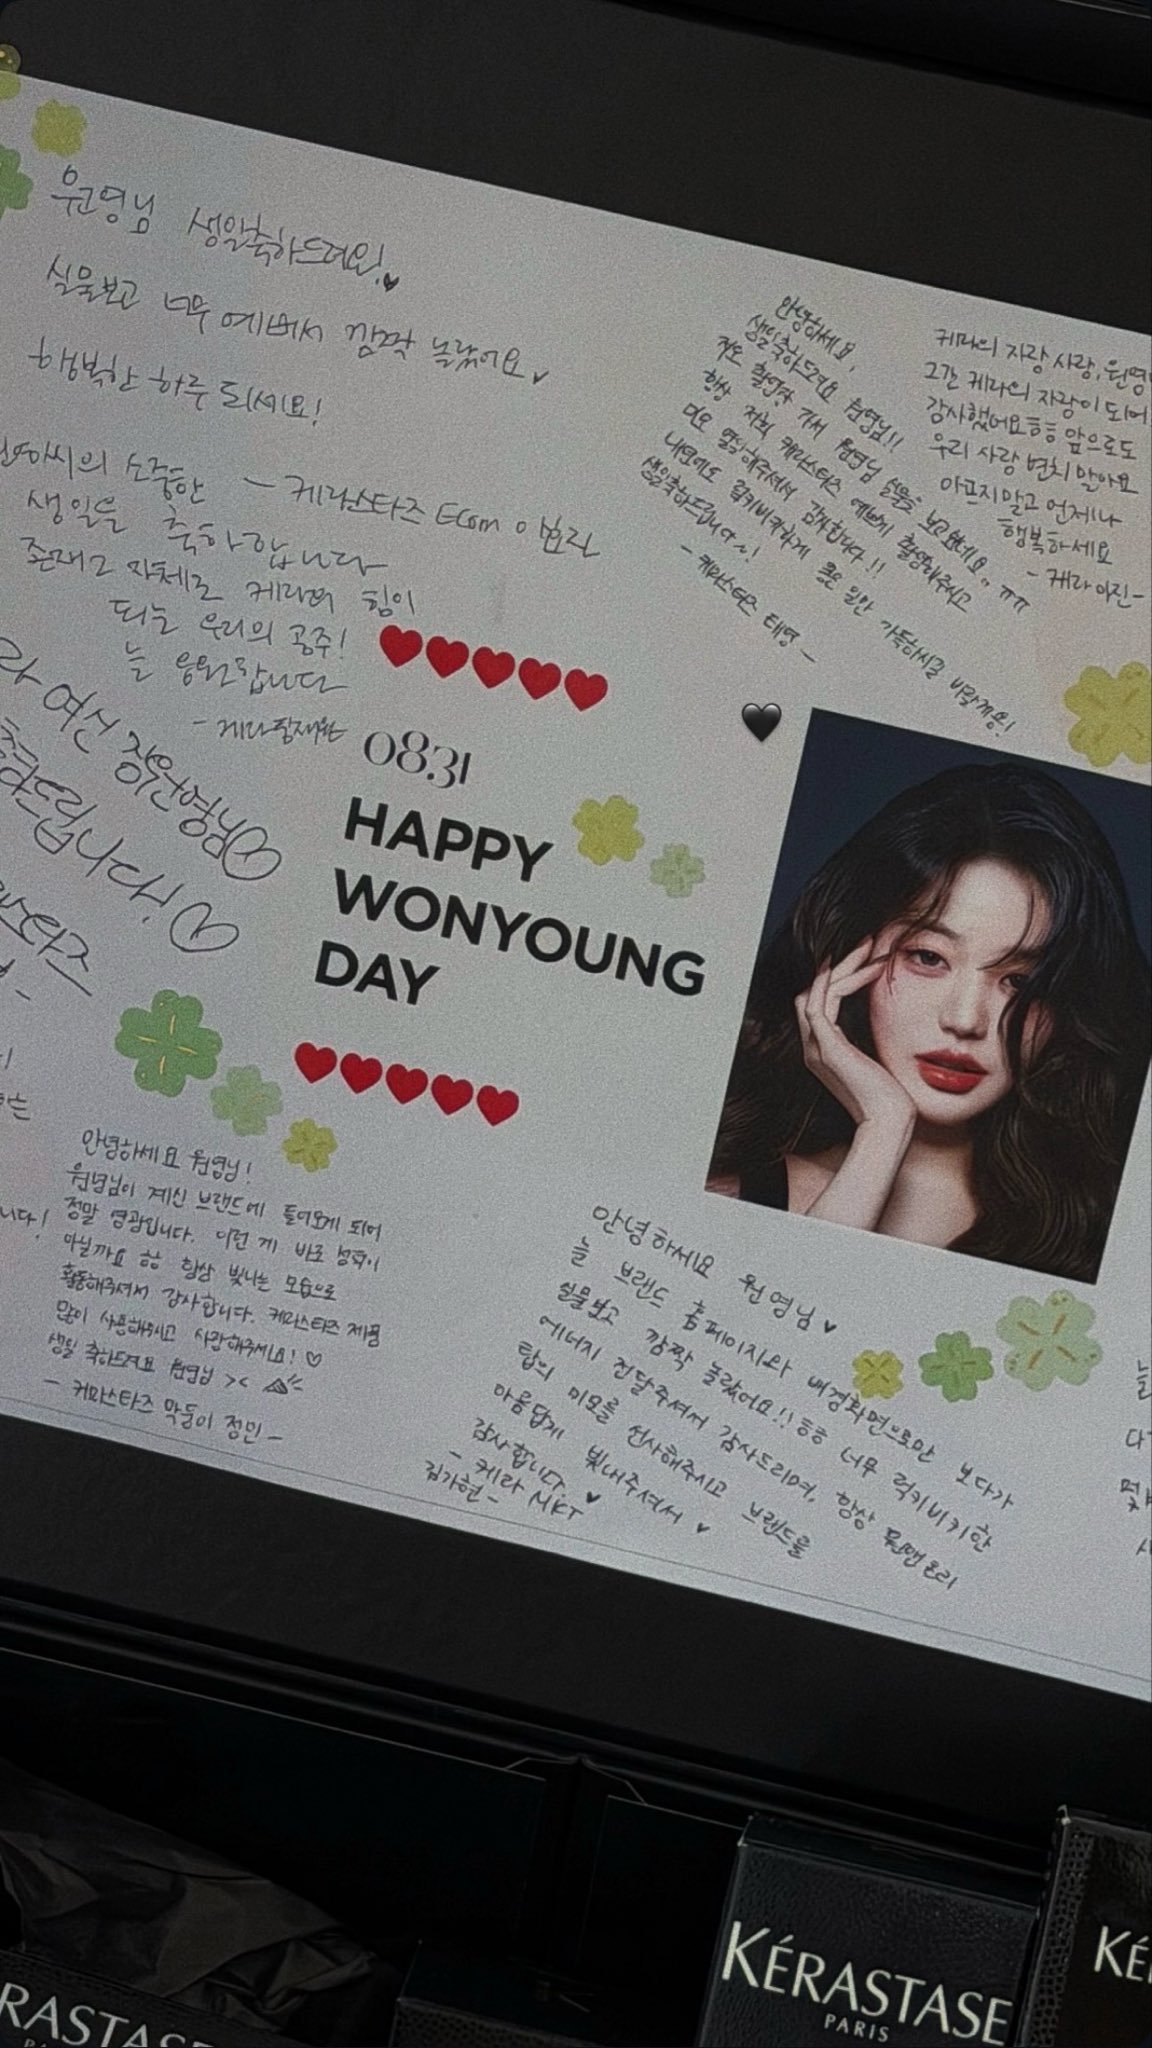 원영님 생일축하드려요!♥
실물보고 너무 예뻐서 깜짝 놀랐어요
행복한 하루 되세요!
- 케라스타즈 Ecom
소중한
생일을 축하합니다
존재 그 자체로 케라의 힘이
되는 우리의 공주!
늘 응원합니다
안녕하세요,
생일축하드려요 원영님!!
저도 촬영장 가서 원영님 실물을 보고왔네요.. ㅠㅠ
항상 저희 케라스타즈 예쁘게 촬영해주시고
미모 열일해주셔서 감사합니다!!
내년에도 럭키비키하게 좋은 일만 가득하시길 바랄게용!
생일축하드립니다~!
- 케라스타즈 태영 -
케라의 자랑 사랑, 원영
그간 케라의 자랑이 되어
감사했어요ㅎㅎ 앞으로도
우리 사랑 변치 말아요
아프지말고 언제나
행복하세요
- 케라 이진-
여신 장원영님♡
드립니다!♡
스타즈
08.31
HAPPY
WONYOUNG
DAY
안녕하세요 원영님!
원영님이 계신 브랜드에 들어오게 되어
정말 영광입니다. 이런 게 바로 성덕이
아닐까요 ㅎㅎ 항상 빛나는 모습으로
활동해주셔서 감사합니다. 케라스타즈 제품
많이 사용해주시고 사랑해주세요! ♡
생일 축하드려요 원영님 ><
- 케라스타즈 막둥이 정민 -
안녕하세요 원영님 ♥
늘 브랜드 홈페이지와 배경화면으로만 보다가
실물보고 깜짝 놀랐어요!! ㅎㅎ 너무 럭키비키한
에너지 전달주셔서 감사드리며, 항상 원앤온리
탑의 미모를 선사해주시고 브랜드를
아름답게 빛내주셔서 ♥
감사합니다. ♥
- 케라 MKT
김가현 -
KÉRASTASE
PARIS